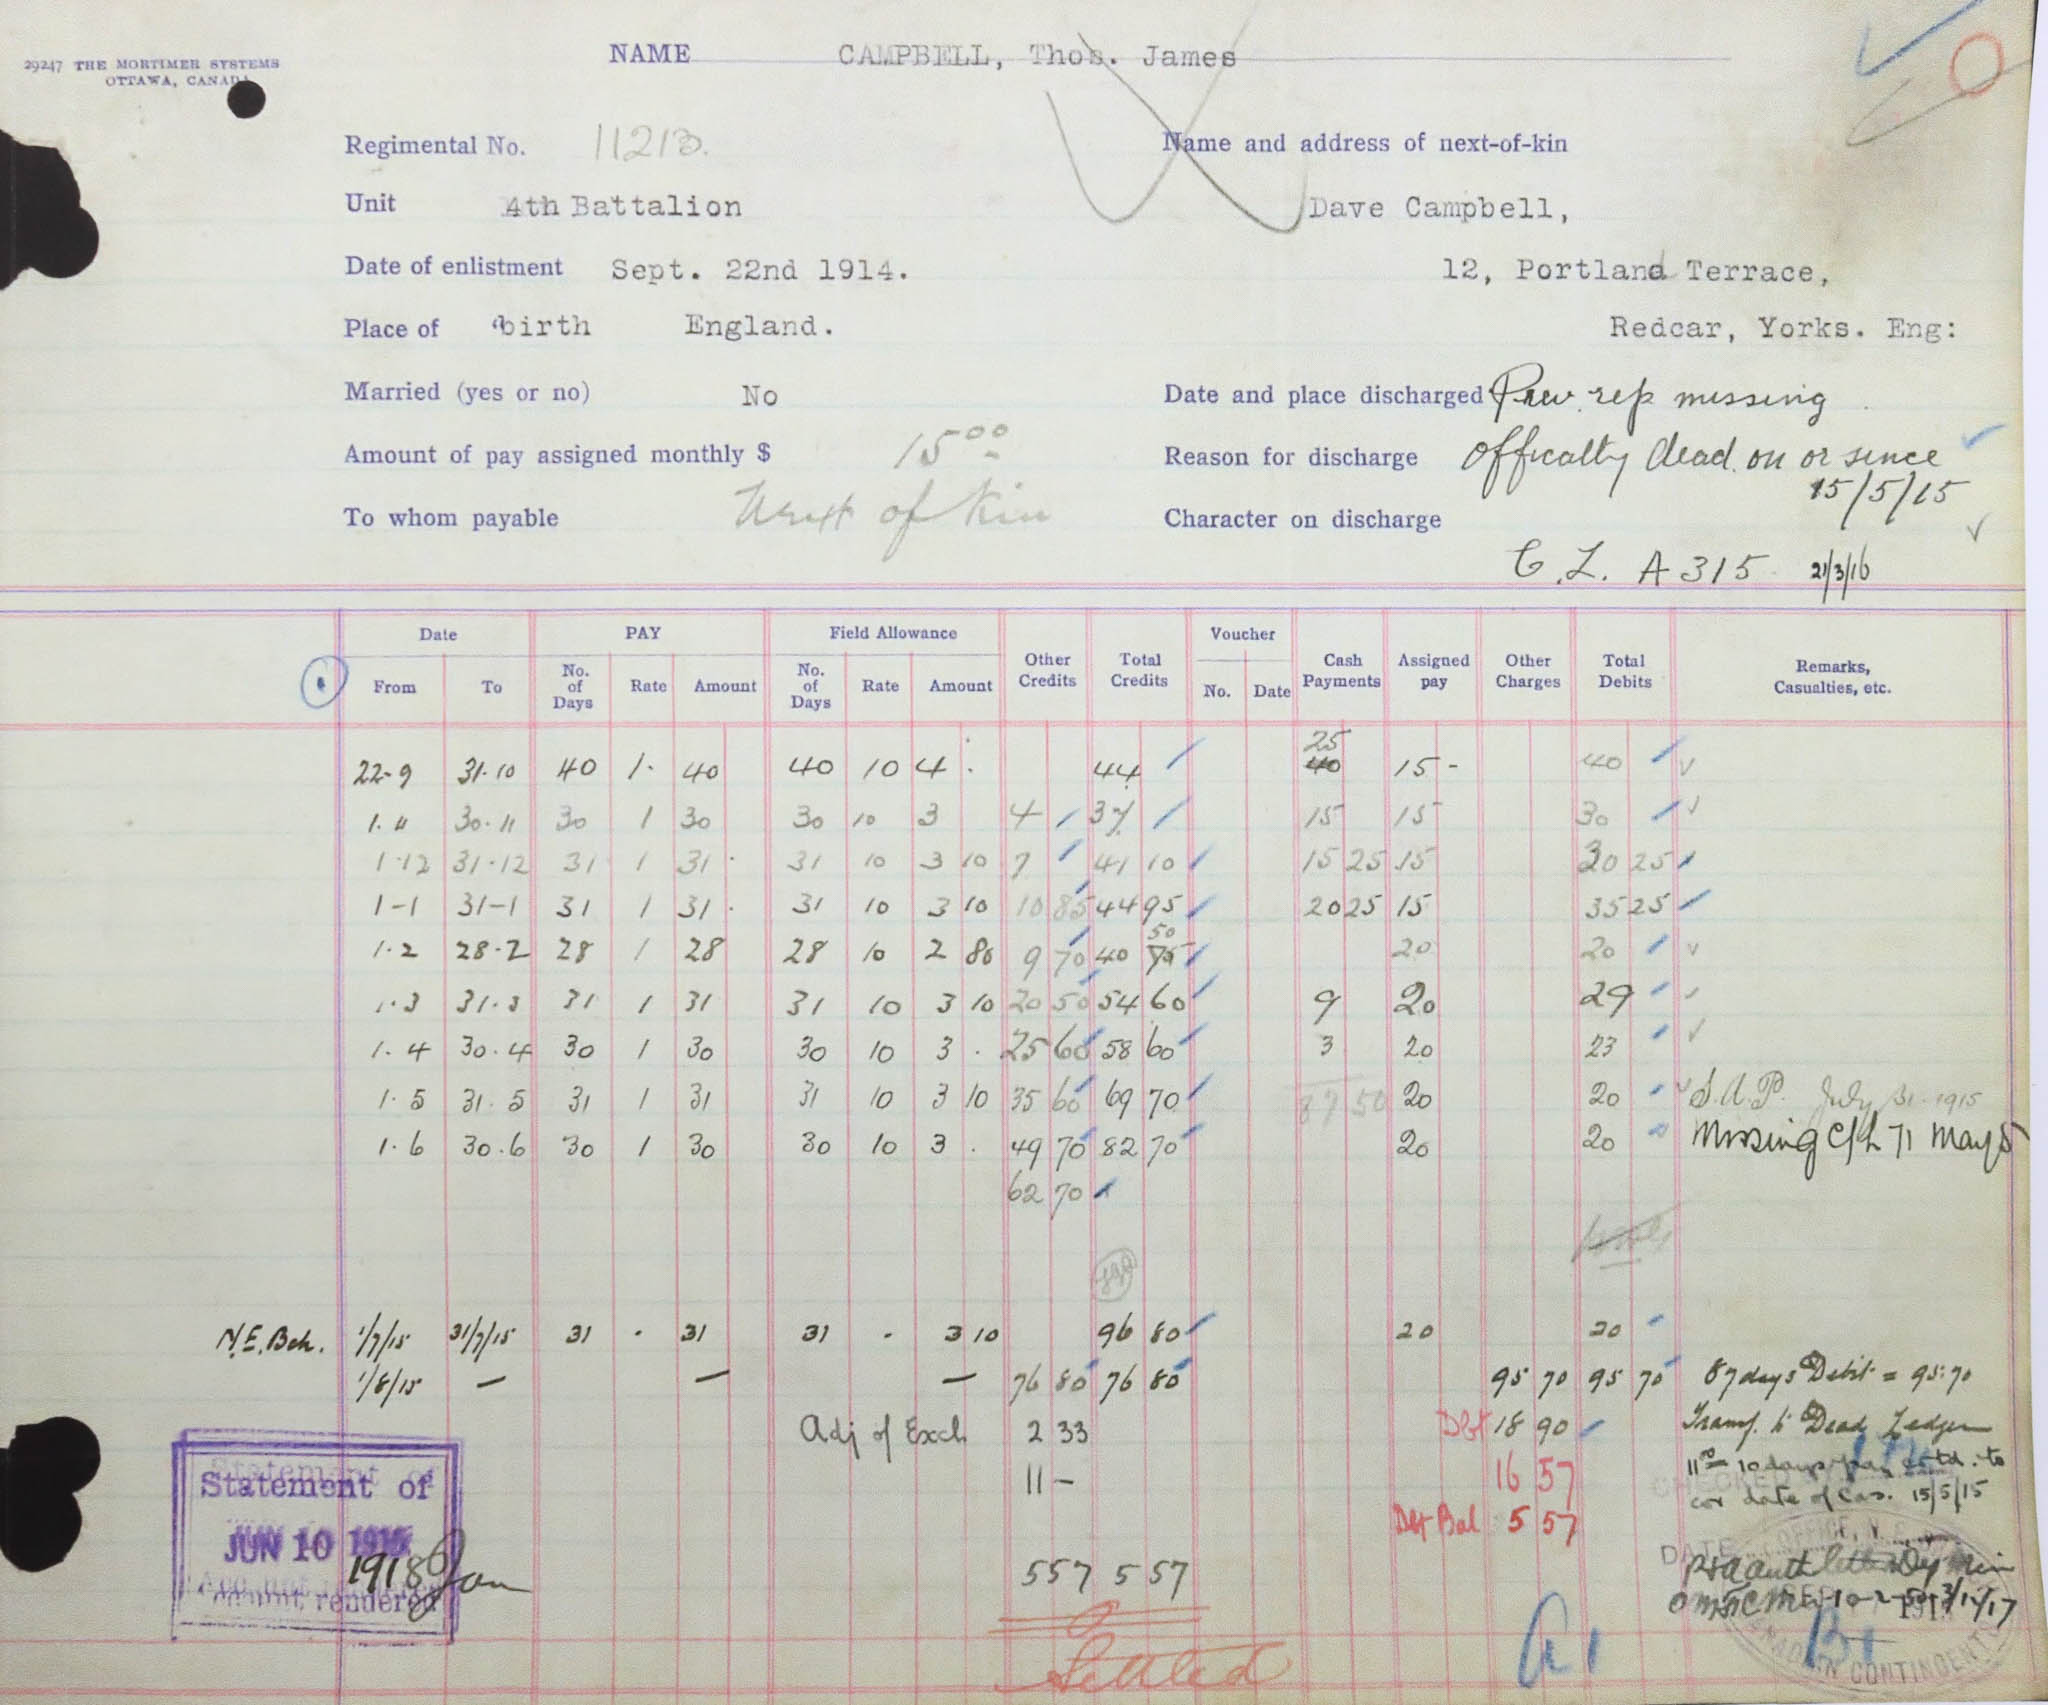 29247 THE MORTIMER SYSTEMS
OTTAWA, CANADA
NAME CAMPBELL, Thos. James
Regimental No. 11213.
Name and address of next-of-kin
Unit 4th Battalion
Dave Campbell,
Date of enlistment Sept. 22nd 1914.
12, Portland Terrace,
Place of birth England.
Redcar, Yorks. Eng:
Married (yes or no) No
Date and place discharged Prev. rep missing
Amount of pay assigned monthly $ 15.00
Reason for discharge officially dead on or since
15/5/15
To whom payable Next of Kin
Character on discharge
C.L. A 315 21/3/16
Date PAY Field Allowance Other Credits Total Credits Voucher Cash Payments Assigned pay Other Charges Total Debits Remarks, Casualties, etc.
From To No. of Days Rate Amount No. of Days Rate Amount No. Date
22-9 31.10 40 1. 40 40 10 4. 44 25 40 15- 40
1.11 30.11 30 1 30 30 10 3 4 37 15 15 30
1.12 31.12 31 1 31. 31 10 3 10 7 41 10 15 25 15 30 25
1-1 31-1 31 1 31. 31 10 3 10 10 85 44 95 20 25 15 35 25
1.2 28.2 28 1 28 28 10 2 80 9 70 40 50 75 20 20
1.3 31.3 31 1 31 31 10 3 10 20 50 54 60 9 20 29
1.4 30.4 30 1 30 30 10 3. 25 60 58 60 3 20 23
1.5 31.5 31 1 31 31 10 3 10 35 60 69 70 87 50 20 20 S.A.P. July 31-1915
1.6 30.6 30 1 30 30 10 3. 49 70 82 70 20 20 Missing C/L 71 May 5
62 70
N.E. Bch. 1/7/15 31/7/15 31 . 31 31 . 3 10 96 80 20 20
1/8/15 — — — 76 80 76 80 95 70 95 70 87 days Debit = 95.70
Adj of Exch 2 33 Dbt 18 90 Transf. to Dead Ledger
11 - 16 57 11.00 10 days pay to
cor date of Cas. 15/5/15
Dbt Bal 5 57
5 57 5 57
Settled
Statement of
JUN 10
1918
Account rendered
A1
B1
CHECKED
DATE
OFFICE,
CANADIAN CONTINGENTS